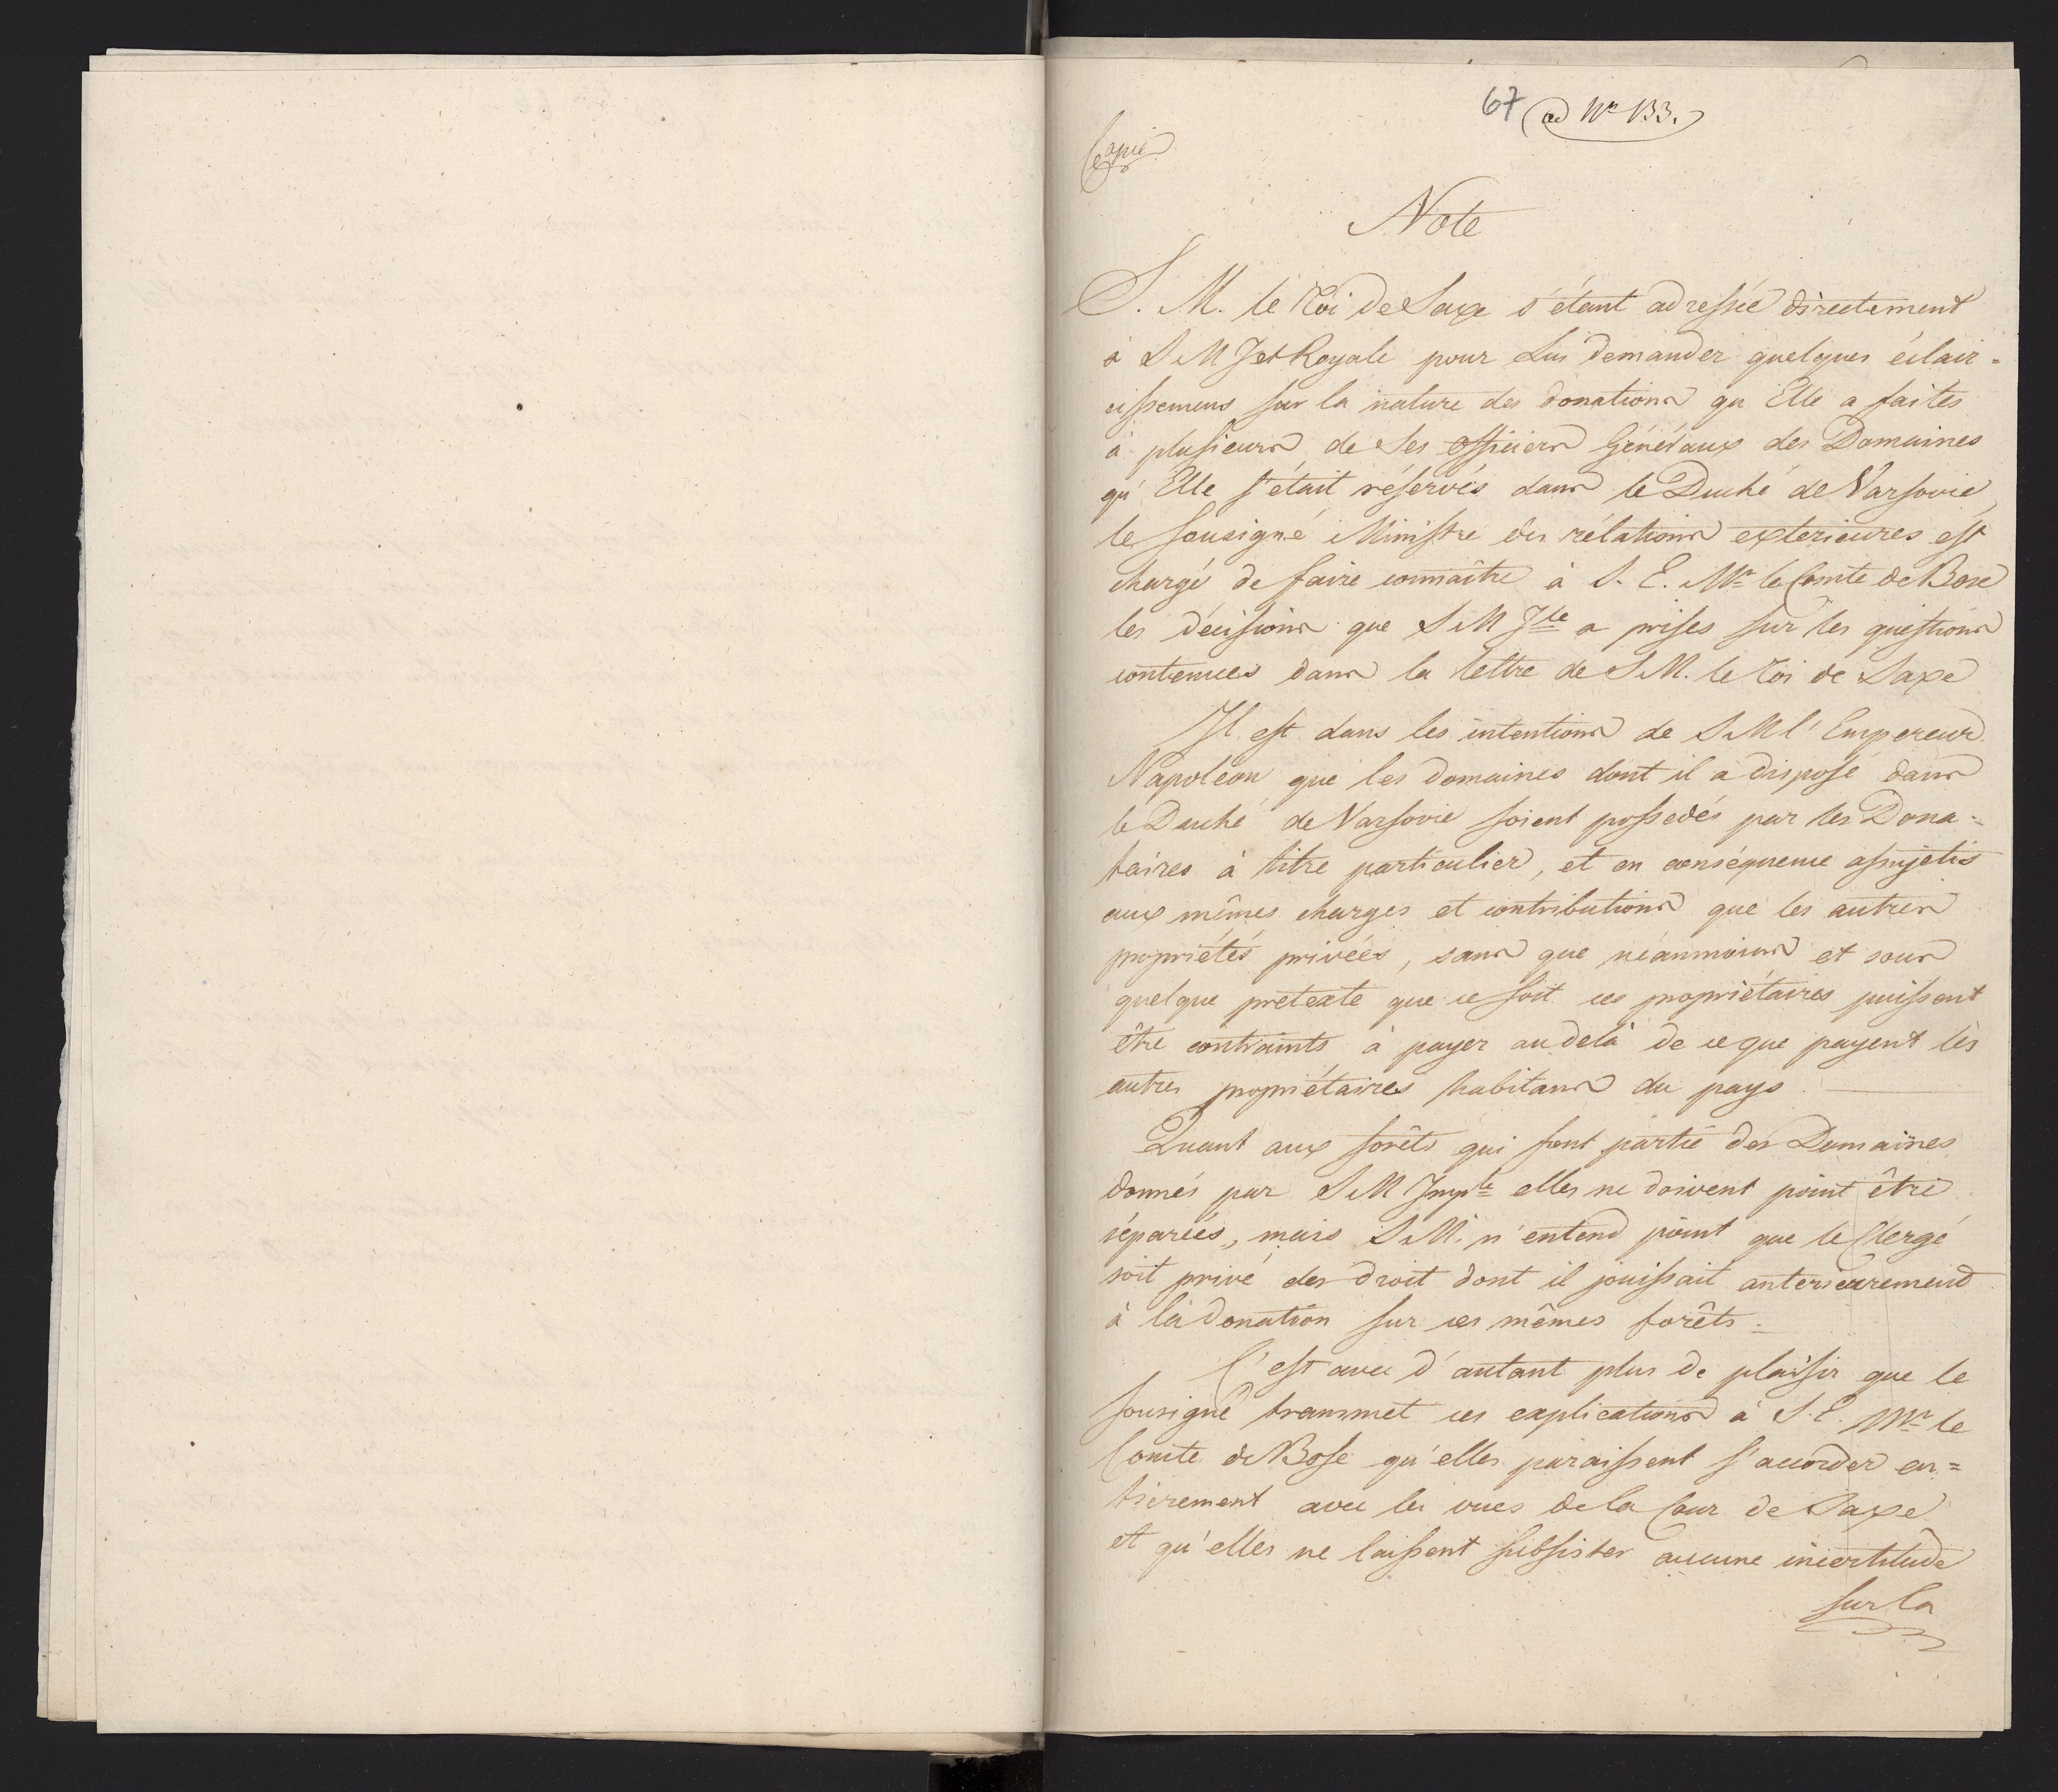 67 ad Nº 133.
Copie
Note
S. M. le Roi de Saxe s'étant adressée directement
à S M J et Royale pour Lui demander quelques éclair=
cissemens sur la nature des donations qu'Elle a faites
à plusieurs de Ses officiers Généraux des Domaines
qu'Elle s'était réservés dans le Duché de Varsovie,
le sousigné Ministre des rélations exterieures est
chargé de faire connaître à S. E. Mr le Comte de Bose
les décisions que S M Jle a prises sur les questions
contenues dans la lettre de S M. le Roi de Saxe
Il est dans les intentions de S M l'Empereur
Napoléon que les domaines dont il a disposé dans
le Duché de Varsovie soient possedés par les Dona=
taires à titre particulier, et en conséquence assujetis
aux mêmes charges et contributions que les autres
propriétés privées, sans que néanmoins et sous
quelque pretexte que ce soit ces propriétaires puissent
être contraints à payer au delà de ce que payent les
autres propriétaires habitans du pays.
Quant aux forêts qui font partie des Domaines
donnés par S M Imple elles ne doivent point être
séparées, mais S M. n'entend point que le Clergé
soit privé des droit dont il jouissait anterieurement
à la donation sur ces mêmes forêts.
C'est avec d'autant plus de plaisir que le
sousigné transmet ces explications à S. E. Mr le
Comte de Bose qu'elles paraissent s'accorder en=
tierement avec les vues de la Cour de Saxe
et qu'elles ne laissent subsister aucune incertitude
sur la